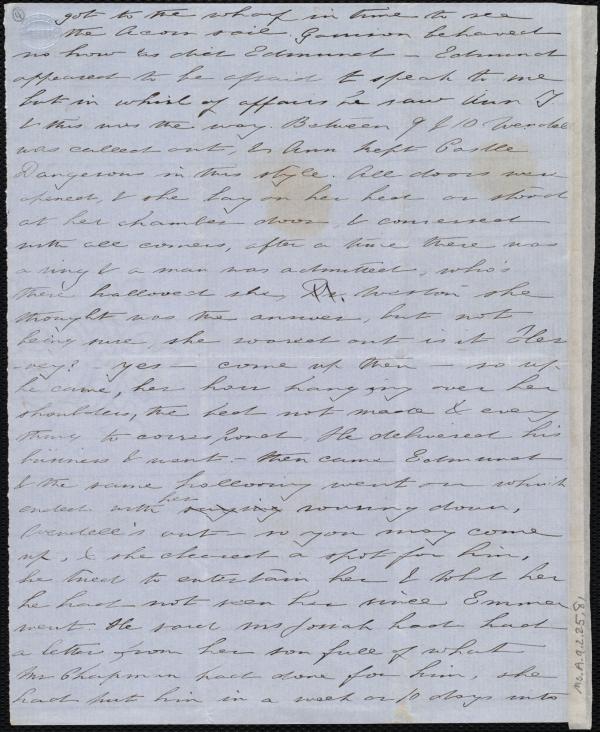 got to the wharf in time to see
the Acorn sail. Garrison behaved
no how as did Edmund – Edmund
appeared to be afraid to speak to me
but in whirl of affairs he saw Ann T
& this was the way. Between 9 & 10 Wendell
was called out, & Ann kept Castle
Dangerous in this style. All doors were
opened, & she lay on her bed or stood
at her chamber door, & conversed
with all comers, after a time there was
a ring & a man was admitted, who's
there halloaed she, Dr. Weston she
thought was the answer, but not
being sure, she roared out is it Her
vey? yes – come up then – so up
he came, her hair hanging over her
shoulders, the bed not made & every
thing to correspond. He delivered his
business & went – then came Edmund
& the same hallooing went on which
ended with her roaring down,
Wendell's out – so you may come
up, & she cleared a spot for him,
he tried to entertain her & told her
he had not seen her since Emma
went. He said Mrs Josiah had had
a letter from her son full of what
Mr Chapman had done for him, she
had put him in a week or 10 days into
Ms.A.9.2.25,81